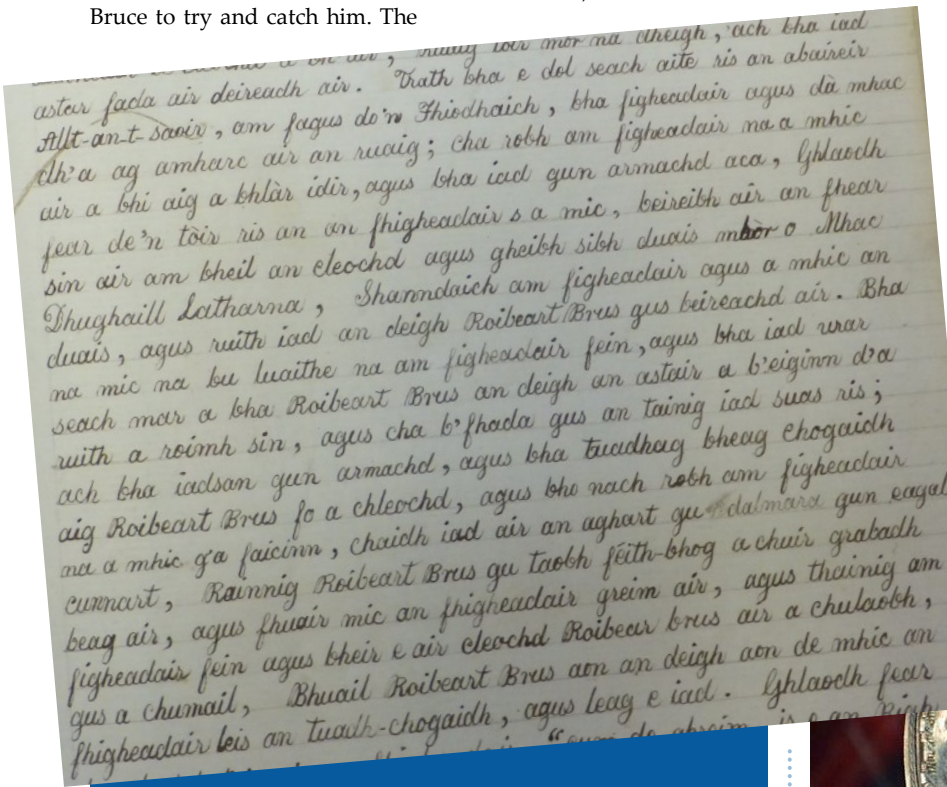 Bruce to try and catch him. The
air, ruaig toir mor na dheigh, ach bha iad
astar fada air deireadh air. Trath bha e dol seach aite ris an abaireir
Allt-an-t-saoir, am fagus do'n Fhiodhaich, bha figheadair agus dà mhac
dh'a ag amharc air an ruaig; cha robh am figheadair na a mhic
air a bhi aig a bhlàr idir, agus bha iad gun armachd aca, Ghlaodh
fear de'n tòir ris an an fhigheadair s a mic, beireibh air an fhear
sin air am bheil an cleochd agus gheibh sibh duais mhòr o Mhac
Dhughaill Latharna, Shanndaich am figheadair agus a mhic an
duais, agus ruith iad an deigh Roibeart Brus gus beireachd air. Bha
na mic na bu luaithe na am figheadair fein, agus bha iad urar
seach mar a bha Roibeart Brus an deigh an astair a b'eiginn d'a
ruith a roimh sin, agus cha b'fhada gus an tainig iad suas ris;
ach bha iadsan gun armachd, agus bha tuadhag bheag chogaidh
aig Roibeart Brus fo a chleochd, agus bho nach robh am figheadair
na a mhic g'a faicinn, chaidh iad air an aghart gu dalmara gun eagal
cunnart, Rainnig Roibeart Brus gu taobh féith-bhog a chuir grabadh
beag air, agus fhuair mic an fhigheadair greim air, agus thainig am
figheadair fein agus bheir e air cleochd Roibear brus air a chulaobh,
gus a chumail, Bhuail Roibeart Brus aon an deigh aon de mhic an
fhigheadair leis an tuadh-chogaidh, agus leag e iad. Ghlaodh fear
is e an Righ